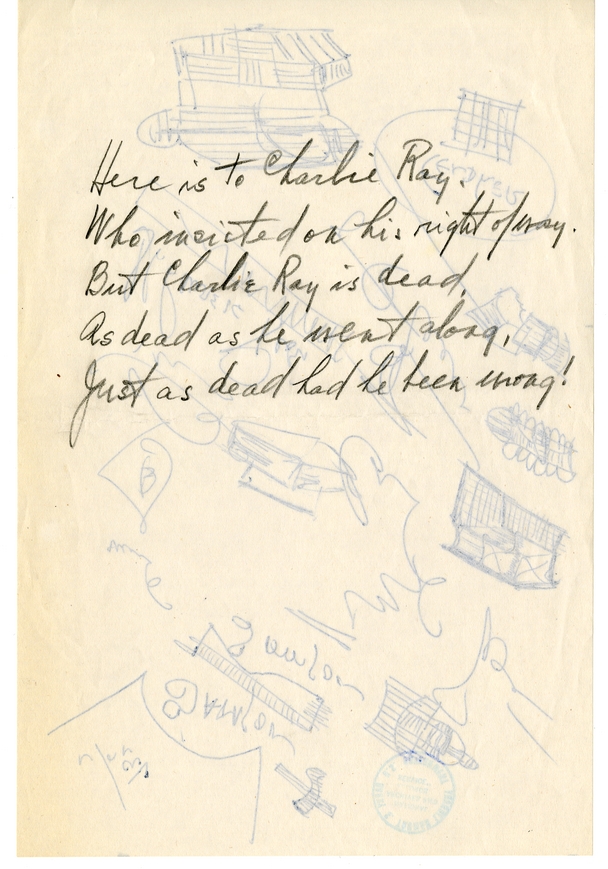 Here is to Charlie Ray.
Who insicted on his right of way.
But Charlie Ray is dead,
As dead as he went along,
Just as dead had he been wrong!